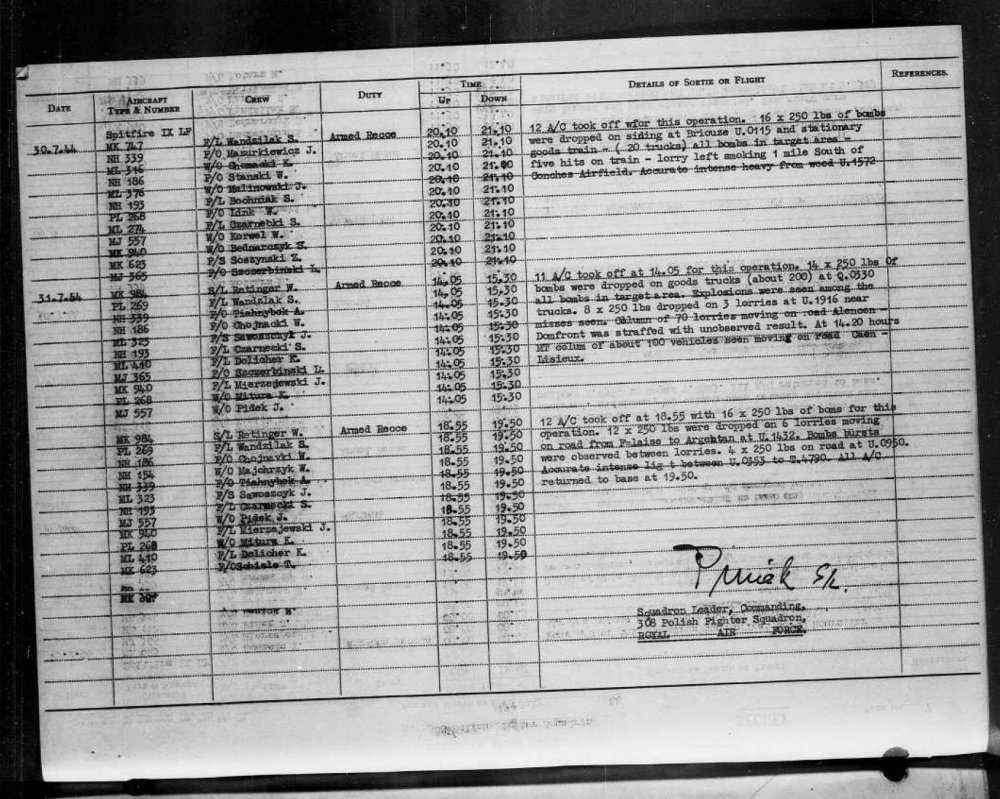 DATE AIRCRAFT TYPE & NUMBER CREW DUTY TIME UP DOWN DETAILS OF SORTIE OR FLIGHT REFERENCES.
Spitfire IX LF
30.7.44 MK 747 F/L Wandzilak S. Armed Recce 20.10 21.10 12 A/C took off wfor this operation. 16 x 250 lbs of bombs
NH 339 F/O Mazurkiewicz J. 20.10 21.10 were dropped on siding at Briouze U.0115 and stationary
ML 316 W/O Chomacki K. 20.10 21.10 goods train - ( 20 trucks) all bombs in target area
NH 186 F/O Stanski W. 20.10 21.00 five hits on train - lorry left smoking 1 mile South of
ML 376 W/O Malinowski J. 20.10 21.10 Conches Airfield. Accurate intense heavy from wood U.1572
NH 193 F/L Bochniak S. 20.10 21.10
PL 268 F/O Link W. 20.10 21.10
ML 274 F/L Czarnecki S. 20.10 21.10
MJ 557 W/O Korwel W. 20.10 21.10
MK 940 W/O Bednarczyk S. 20.10 21.10
MK 623 F/S Soszynski Z. 20.10 21.10
MJ 365 F/O Szczerbinski L. 20.10 21.10
31.7.44 MK 984 S/L Retinger W. Armed Recce 14.05 15.30 11 A/C took off at 14.05 for this operation. 14 x 250 lbs Of
PL 269 F/L Wandzlak S. 14.05 15.30 bombs were dropped on goods trucks (about 200) at Q.0330
NH 339 F/O Tiahnybok A. 14.05 15.30 all bombs in target area. Explosions were seen among the
NH 186 F/O Chojnacki W. 14.05 15.30 trucks. 8 x 250 lbs dropped on 3 lorries at U.1916 near
ML 323 F/S Sawoszczyk J. 14.05 15.30 misses seen. Column of 70 lorries moving on road Alencon -
NH 193 F/L Czarnecki S. 14.05 15.30 Domfront was straffed with unobserved result. At 14.20 hours
ML 410 F/L Delicher K. 14.05 15.30 MT colum of about 100 vehicles seen moving on road Caen -
MJ 365 F/O Szczerbinski L. 14.05 15.30 Lisieux.
MK 940 F/L Mierzejewski J. 14.05 15.30
PL 268 W/O Mitura K. 14.05 15.30
MJ 557 W/O Pidek J. 14.05 15.30
MK 984 S/L Retinger W. Armed Recce 18.55 19.50 12 A/C took off at 18.55 with 16 x 250 lbs of boms for this
PL 269 F/L Wandzilak S. 18.55 19.50 operation. 12 x 250 lbs were dropped on 6 lorries moving
NH 186 F/O Chojnavki W. 18.55 19.50 on road from Falaise to Argehtan at U.1432. Bombs bursts
NH 154 W/O Majchrzyk W. 18.55 19.50 were observed between lorries. 4 x 250 lbs on road at U.0950.
NH 339 F/O Tiahnybok A. 18.55 19.50 Accurate intense lig t between U.0353 to T.4790. All A/C
ML 323 F/S Sawoszcyk J. 18.55 19.50 returned to base at 19.50.
NH 193 F/L Czarnecki S. 18.55 19.50
MJ 557 W/O Pidek J. 18.55 19.50
MK 940 F/L Mierzejewski J. 18.55 19.50
PL 268 W/O Mitura K. 18.55 19.50
ML 410 F/L Delicher K. 18.55 19.50
MK 623 F/OSchiele T. 18.55 19.50
S/L.
Squadron Leader, Commanding,
308 Polish Fighter Squadron,
ROYAL AIR FORCE.